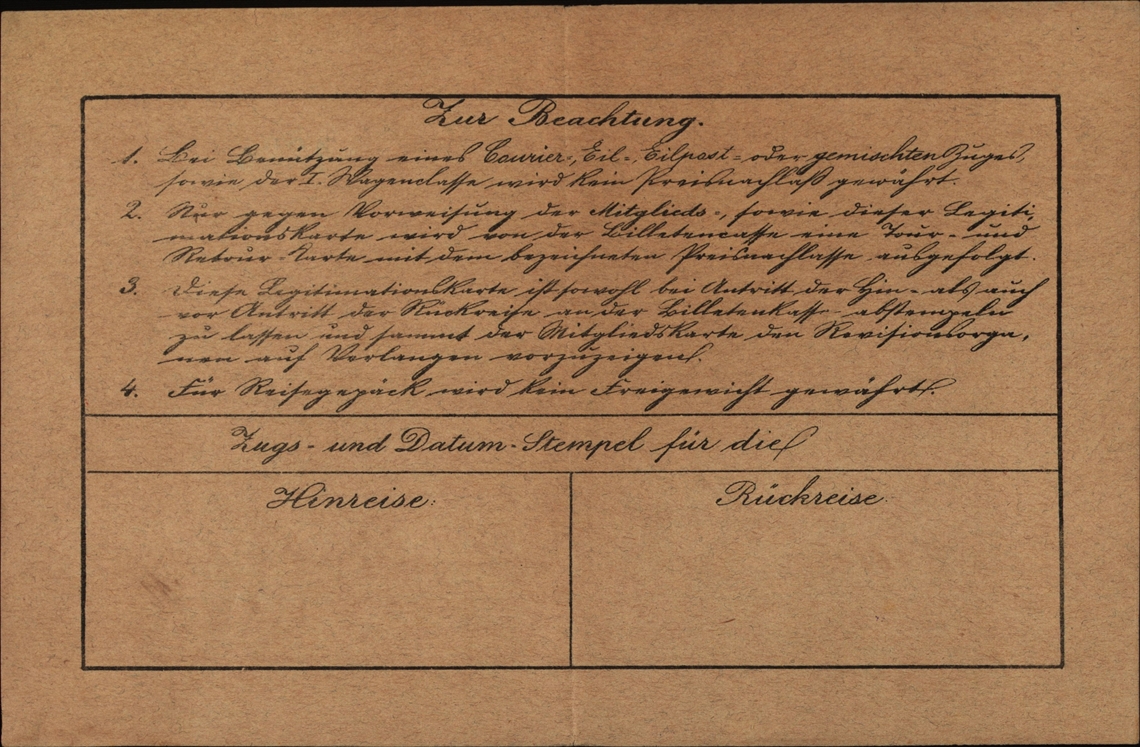 Zur Beachtung.
1. Bei Benützung eines Courier-, Eil-, Eilpost- oder gemischten Zuges,
sowie der I. Wagenclasse wird kein Preisnachlaß gewährt.
2. Nur gegen Vorweisung der Mitglieds-, sowie dieser Legiti-
mationskarte wird von der Billetencasse eine Tour- und
Retour-Karte mit dem bezeichneten Preisnachlasse ausgefolgt.
3. Diese Legitimationskarte ist sowohl bei Antritt der Hin- als auch
vor Antritt der Rückreise an der Billetenkasse abstempeln
zu lassen und sammt der Mitgliedskarte den Revisionsorga-
nen auf Verlangen vorzuzeigen.
4. Für Reisegepäck wird kein Freigewicht gewährt.
Zugs- und Datum-Stempel für die
Hinreise:
Rückreise: